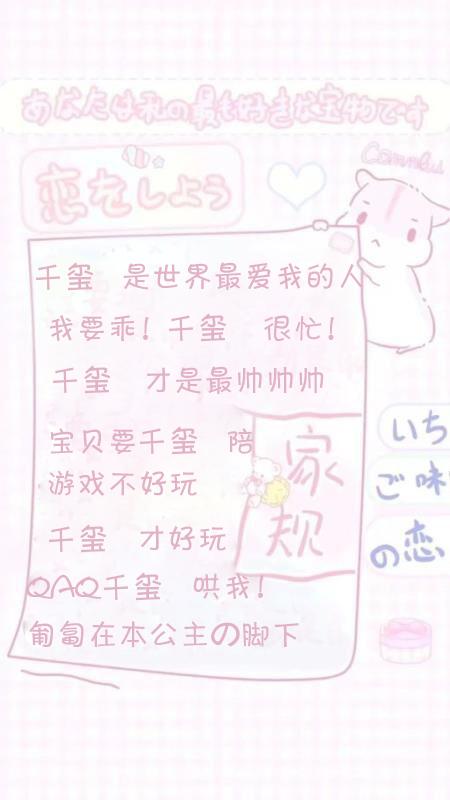 あなたは私の最も好きな宝物です
恋をしよう
千玺 是世界最爱我的人
我要乖！千玺 很忙！
千玺 才是最帅帅帅
宝贝要千玺 陪
游戏不好玩
千玺 才好玩
QAQ千玺 哄我！
匍匐在本公主の脚下
家规
いち
ご味
の恋